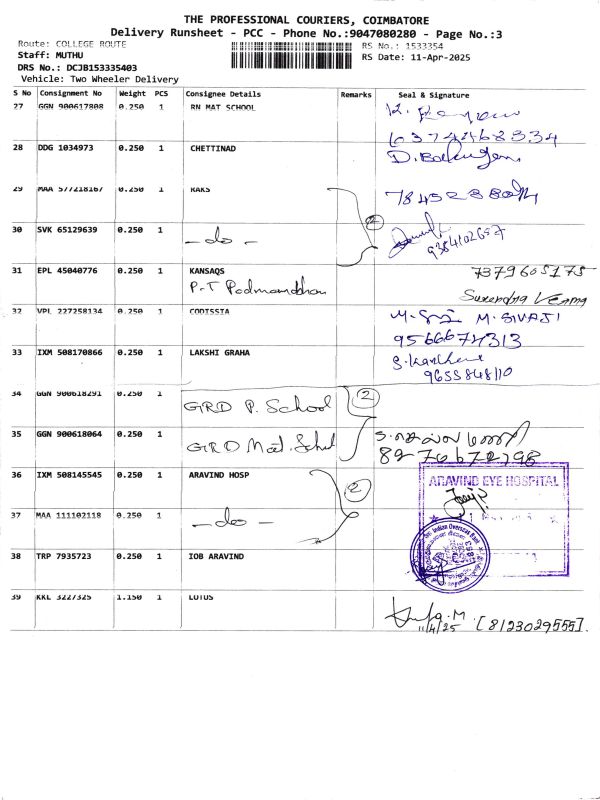 THE PROFESSIONAL COURIERS, COIMBATORE
Delivery Runsheet - PCC - Phone No.:9047080280 - Page No.:3
Route: COLLEGE ROUTE
RS No.: 1533354
Staff: MUTHU
RS Date: 11-Apr-2025
DRS No.: DCJB153335403
Vehicle: Two Wheeler Delivery
S No Consignment No Weight PCS Consignee Details Remarks Seal & Signature
27 GGN 900617808 0.250 1 RN MAT SCHOOL
6374468334
28 DDG 1034973 0.250 1 CHETTINAD
29 MAA 577218167 0.250 1 RAKS
2
30 SVK 65129639 0.250 1 - do -
9384102657
31 EPL 45040776 0.250 1 KANSAQS 7379605175
P.T Surendra
32 VPL 227258134 0.250 1 CODISSIA M. SIVAJI
9566674313
33 IXM 508170866 0.250 1 LAKSHI GRAHA
9655848110
34 GGN 900618291 0.250 1 GRD P. School 2
35 GGN 900618064 0.250 1 GRD Mat. School
8276672798
36 IXM 508145545 0.250 1 ARAVIND HOSP 2
ARAVIND EYE HOSPITAL
37 MAA 111102118 0.250 1 - do -
Indian Overseas Bank
38 TRP 7935723 0.250 1 IOB ARAVIND
39 KKL 3227325 1.150 1 LOTUS
11/4/25 [8123029555]